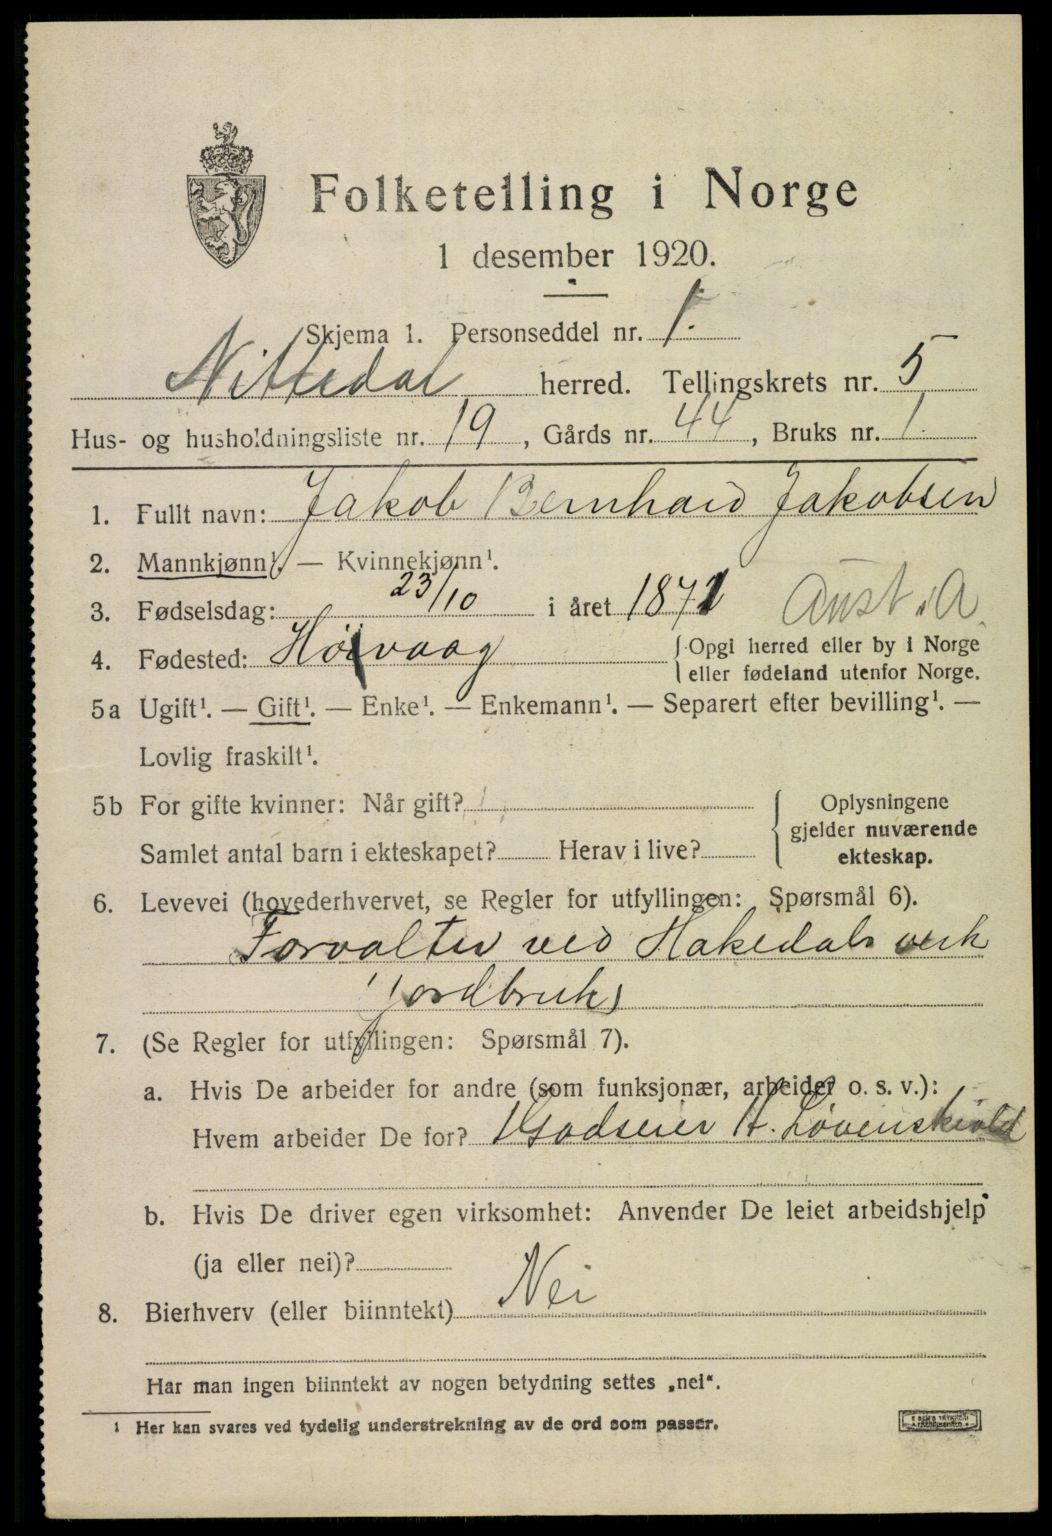 Folketelling i Norge
1 desember 1920.
Skjema 1. Personseddel nr. 1.
Nittedal herred. Tellingskrets nr. 5
Hus- og husholdningsliste nr. 19, Gårds nr. 44, Bruks nr. 1.
1. Fullt navn: Jakob Bernhard Jakobsen
2. Mannkjønn¹. — Kvinnekjønn¹.
3. Fødselsdag: 23/10 i året 1871 Aust. A.
4. Fødested: Høivaag {Opgi herred eller by i Norge
eller fødeland utenfor Norge.
5a Ugift¹. — Gift¹. — Enke¹. — Enkemann¹. — Separert efter bevilling¹. —
Lovlig fraskilt¹.
5b For gifte kvinner: Når gift?
Samlet antal barn i ekteskapet? Herav i live?
{Oplysningene
gjelder nuværende
ekteskap.
6. Levevei (hovederhvervet, se Regler for utfyllingen: Spørsmål 6).
Forvalter ved Hakedals verk
(jordbruk)
7. (Se Regler for utfyllingen: Spørsmål 7).
a. Hvis De arbeider for andre (som funksjonær, arbeider o. s. v.):
Hvem arbeider De for? Godseier H. Løvenskiold
b. Hvis De driver egen virksomhet: Anvender De leiet arbeidshjelp
(ja eller nei)?
8. Bierhverv (eller biinntekt) Nei
Har man ingen biinntekt av nogen betydning settes „nei“.
¹ Her kan svares ved tydelig understrekning av de ord som passer.